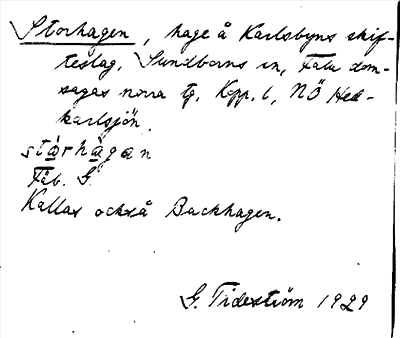 Storhagen, hage å Karlsbyns skif-
teslag, Sundborns sn, Falu dom-
sagas norra tg, Kopp. l, NÖ Hed-
karlsjön.
stọ́rhàgan
Fåb. G.
Kallas också Backhagen.
G. Tideström 1929